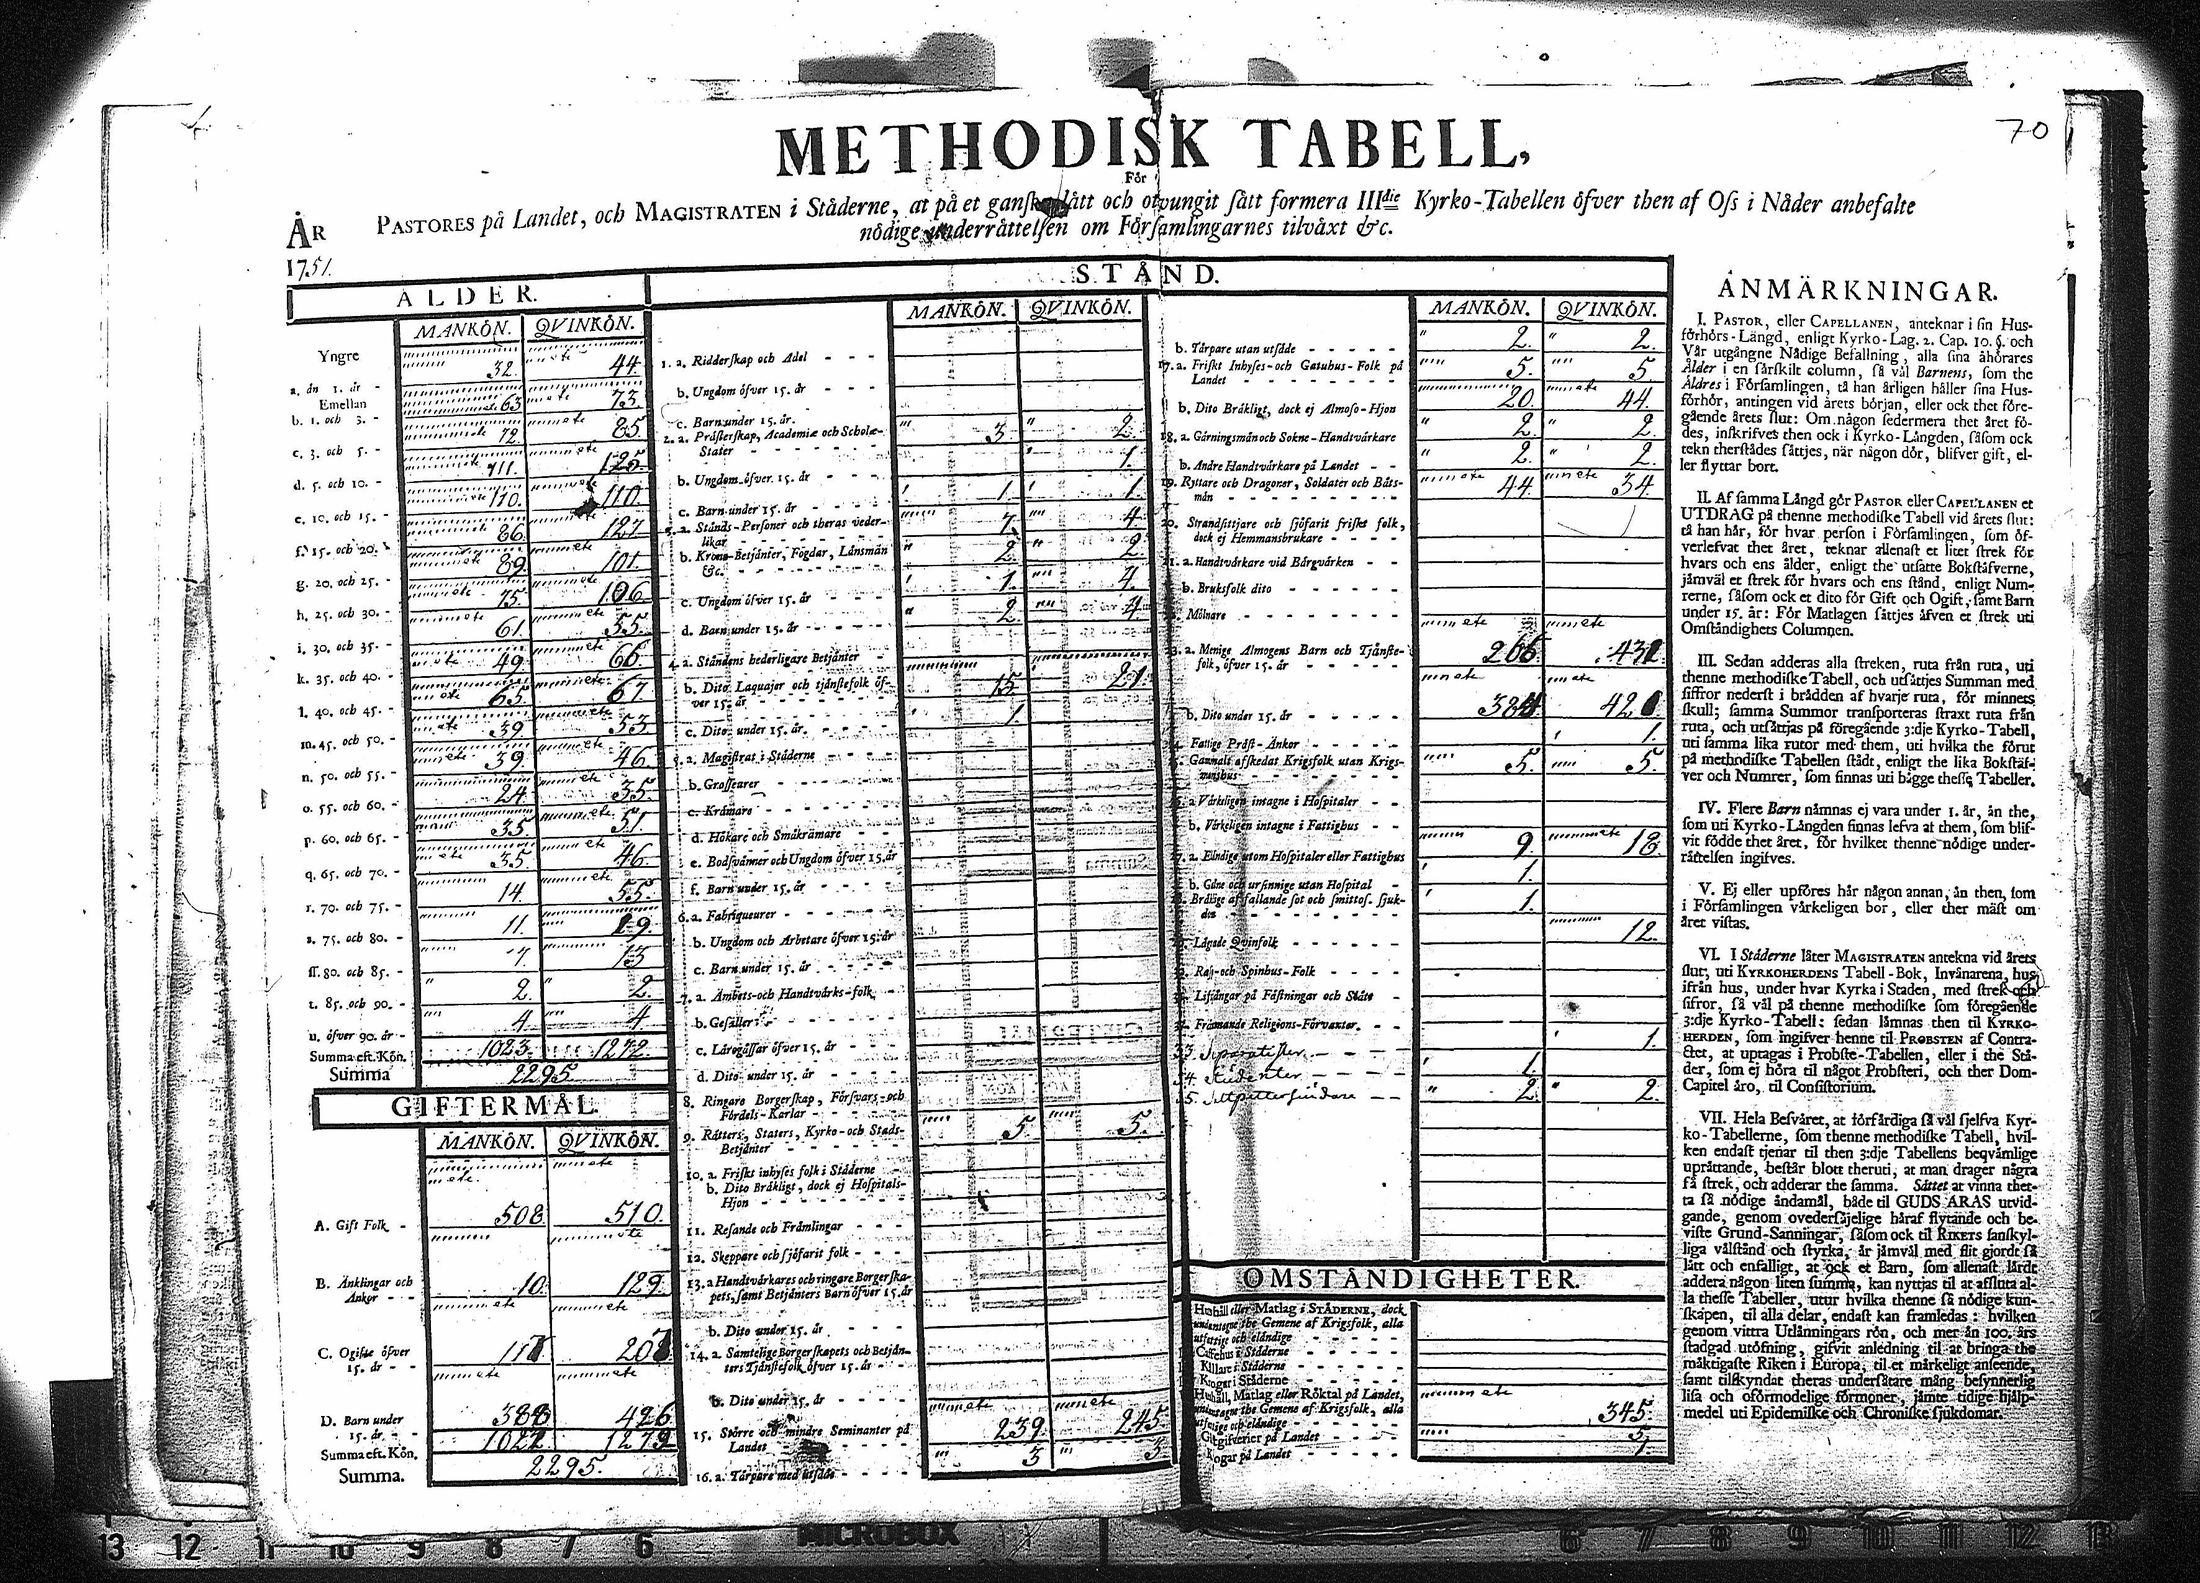 70
METHODISK TABELL,
För
PASTORES på Landet, och MAGISTRATEN i Städerne, at på et ganska lått och otvungit sått formera IIIdie Kyrko-Tabellen öfver then af Oss i Nåder anbefalte
nödige underråttelsen om Församlingarnes tilvåxt &c.
ÅR
1751.
ÅLDER.
MANKÖN. QVINKÖN.
Yngre
a. ån 1. år - 32. 44.
Emellan
b. 1. och 3. - 63 73.
c. 3. och 5. - 72. 85.
d. 5. och 10. - 111. 125.
e. 10. och 15. - 110. 110.
f. 15. och 20. 86. 127.
g. 20. och 25. - 89. 101.
h. 25. och 30. - 75. 106
i. 30. och 35. - 61. 55.
k. 35. och 40. - 49. 66.
l. 40. och 45. - 65. 67
m. 45. och 50. - 39. 53.
n. 50. och 55. - 39. 46.
o. 55. och 60. - 24. 35.
p. 60. och 65. - 35. 51.
q. 65. och 70. - 35. 46.
r. 70. och 75. - 14. 55.
s. 75. och 80. - 11. 19.
ss. 80. och 85. - 7. 13
t. 85. och 90. - 2. 2.
u. öfver 90. år - 4. 4
Summa eft. Kön. 1023. 1272.
Summa 2295.
GIFTERMÅL.
MANKÖN. QVINKÖN.
A. Gift Folk - 508 510.
B. Änklingar och
Ånkor - - 10. 129.
C. Ogifte öfver
15. år - -
D. Barn under
15. år - -
Summa eft. Kön.
Summa. 2295.
STÅND.
MANKÖN. QVINKÖN.
1. a. Ridderskap och Adel - - -
b. Ungdom öfver 15. år - - -
c. Barn under 15. år.
2. a. Pråsterskap, Academiæ och Scholæ-
Stater - - - 3. 2.
b. Ungdom öfver 15. år - - 1.
c. Barn under 15. år - - 1. 1
3. a. Stånds-Personer och theras veder-
likar 7. 4.
b. Krono-Betjånter, Fogdar, Lånsmån
&c. - - - 2. 2.
c. Ungdom öfver 15. år - - - 1. 4.
d. Barn under 15. år - - - 2 4.
4. a. Ståndens hederligare Betjånter -
b. Dito Laquajer och tjånstefolk öf-
ver 15. år - - - 15. 21.
c. Dito under 15. år. - - - 1.
5. a. Magistrat i Städerne - - -
b. Grosserer - - -
c. Kråmare - - -
d. Hökare och Småkråmare - -
e. Bodsvånner och Ungdom öfver 15. år
f. Barn under 15. år - - -
6. a. Fabriqueurer - - -
b. Ungdom och Arbetare öfver 15. år
c. Barn under 15. år - - -
7. a. Ämbets-och Handtvårks-folk, -
b. Gesåller - - -
c. Lårogåssar öfver 15. år - - -
d. Dito under 15. år - - -
8. Ringare Borgerskap, Försvars-och
Fördels-Karlar - - -
9. Råtters, Staters, Kyrko-och Stads-
Betjånter - - - 5. 5.
10. a. Friskt inhyses folk i Städerne -
b. Dito Bråkligt, dock ej Hospitals-
Hjon - - -
11. Resande och Fråmlingar - - -
12. Skeppare och sjöfarit folk - - -
13. a Handtvårkares och ringare Borgerska-
pets, samt Betjånters Barn öfver 15. år
b. Dito under 15. år - - -
14. a. Samtelige Borgerskapets och Betjån-
ters Tjånstefolk öfver 15. år - -
b. Dito under 15. år - - -
15. Större och mindre Seminanter på
Landet - - - 239. 245.
16. a. Tårpare med utsåde - - - 3 3.
MANKÖN. QVINKÖN.
b. Tårpare utan utsåde - - - 2. 2.
17. a. Friskt Inhyses-och Gatuhus-Folk på
Landet - - - 5. 5
b. Dito Bråkligt, dock ej Almoso-Hjon 20. 44.
18. a. Gårningsmån och Sokne-Handtvårkare 2. 2.
b. Andre Handtvårkare på Landet - - 2. 2.
19. Ryttare och Dragoner, Soldater och Båts-
mån - - - 44. 34.
20. Strandsittjare och sjöfarit friskt folk,
dock ej Hemmansbrukare - - -
21. a. Handtvårkare vid Bårgvårken - -
b. Bruksfolk dito - - -
22. Mölnare - - -
23. a. Menige Almogens Barn och Tjånste-
folk, öfver 15. år - - -
b. Dito under 15. år - - -
24. Fattige Pråst-Ånkor - - - 1.
25. Gammalt afskedat Krigsfolk utan Krigs-
manshus - - - 5. 5.
26. a Vårkeligen intagne i Hospitaler - -
b. Vårkeligen intagne i Fattighus - -
27. a. Elåndige utom Hospitaler eller Fattighus 9. 18.
b. Galne och ursinnige utan Hospital - 1.
28. Bråklige af fallande sot och smittos. sjuk-
dit - - - 1.
29. Lågade Qvinfolk - - - 12.
30. Rasp-och Spinhus-Folk - - -
31. Lifsfångar på Fåstningar och Slått -
32. Fråmmande Religions-Förvanter. - -
33. Separatister - - - 1.
34. Studenter - - - 1.
35. Saltpettersiudare - - 2. 2.
OMSTÅNDIGHETER.
Hushåll eller Matlag i STÅDERNE, dock
undantagne the Gemene af Krigsfolk, alla
utfattige och elåndige - - -
Caffehus i Städerne - - -
Kållare i Städerne - - -
Krogar i Städerne - - -
Hushåll, Matlag eller Röktal på Landet,
undantagne the Gemene af Krigsfolk, alla
utfattige och elåndige - - - 345.
Gåstgifverier på Landet - - - 5.
Krogar på Landet - - -
ANMÄRKNINGAR.
I. PASTOR, eller CAPELLANEN, anteknar i sin Hus-
förhörs-Långd, enligt Kyrko-Lag. 2. Cap. 10. §. och
Vår utgångne Nådige Befallning, alla sina åhörares
Ålder i en sårskilt column, så vål Barnens, som the
Åldres i Församlingen, tå han årligen håller sina Hus-
förhör, antingen vid årets början, eller ock thet före-
gående årets slut: Om någon sedermera thet året fö-
des, inskrifves then ock i Kyrko-Långden, såsom ock
tekn therstådes såttjes, når någon dör, blifver gift, el-
ler flyttar bort.
II. Af samma Långd gör PASTOR eller CAPELLANEN et
UTDRAG på thenne methodiske Tabell vid årets slut:
tå han hår, för hvar person i Församlingen, som öf-
verlefvat thet året, teknar allenast et litet strek för
hvars och ens ålder, enligt the utsatte Bokståfverne,
jåmvål et strek för hvars och ens stånd, enligt Num-
rerne, såsom ock et dito för Gift och Ogift, samt Barn
under 15. år: För Matlagen såttjes åfven et strek uti
Omståndighets Columnen.
III. Sedan adderas alla streken, ruta från ruta, uti
thenne methodiske Tabell, och utsåttjes Summan med
siffror nederst i brådden af hvarje ruta, för minnets
skull; samma Summor transporteras straxt ruta från
ruta, och utsåttjas på föregående 3:dje Kyrko-Tabell,
uti samma lika rutor med them, uti hvilka the förut
på methodiske Tabellen stådt, enligt the lika Bokståf-
ver och Numrer, som finnas uti bågge thesse Tabeller.
IV. Flere Barn nåmnas ej vara under 1. år, ån the,
som uti Kyrko-Långden finnas lefva at them, som blif-
vit födde thet året, för hvilket thenne nödige under-
råttelsen ingifves.
V. Ej eller upföres hår någon annan, ån then, som
i Församlingen vårkeligen bor, eller ther måst om
året vistas.
VI. I Städerne låter MAGISTRATEN antekna vid årets
slut, uti KYRKOHERDENS Tabell-Bok, Invånarena, hus
ifrån hus, under hvar Kyrka i Staden, med strek och
sifror, så vål på thenne methodiske som föregående
3:dje Kyrko-Tabell: sedan låmnas then til KYRKO-
HERDEN, som ingifver henne til PROBSTEN af Contra-
ctet, at uptagas i Probste-Tabellen, eller i the Stå-
der, som ej höra til något Probsteri, och ther Dom-
Capitel åro, til Consistorium.
VII. Hela Besvåret, at förfårdiga så vål sjelfva Kyr-
ko-Tabellerne, som thenne methodiske Tabell, hvil-
ken endast tjenar til then 3:dje Tabellens beqvåmlige
uprättande, består blott theruti, at man drager några
få strek, och adderar the samma. Såttet at vinna thet-
ta så nödige åndamål, både til GUDS ÄRAS utvid-
gande, genom ovedersåjelige håraf flytande och be-
viste Grund-Sanningar, såsom ock til RIKETS sanskyl-
liga vålstånd och styrka, år jåmvål med flit gjordt så
lått och enfalligt, at ock et Barn, som allenast lårdt
addera någon liten summa, kan nyttjas til at afsluta al-
la thesse Tabeller, utur hvilka thenne så nödige kun-
skapen, til alla delar, endast kan framledas: hvilken
genom vittra Utlånningars rön, och mer ån 100. års
stadgad utöfning, gifvit anledning til at bringa the
måktigaste Riken i Europa, til et mårkeligt anseende,
samt tilskyndat theras undersåtare mång besynnerlig
lisa och oförmodelige förmoner, jåmte tidige hjålp-
medel uti Epidemiske och Chroniske sjukdomar.
13 12 11 10 9 8 7 6
MICROBOX
6 7 8 9 10 11 12 13